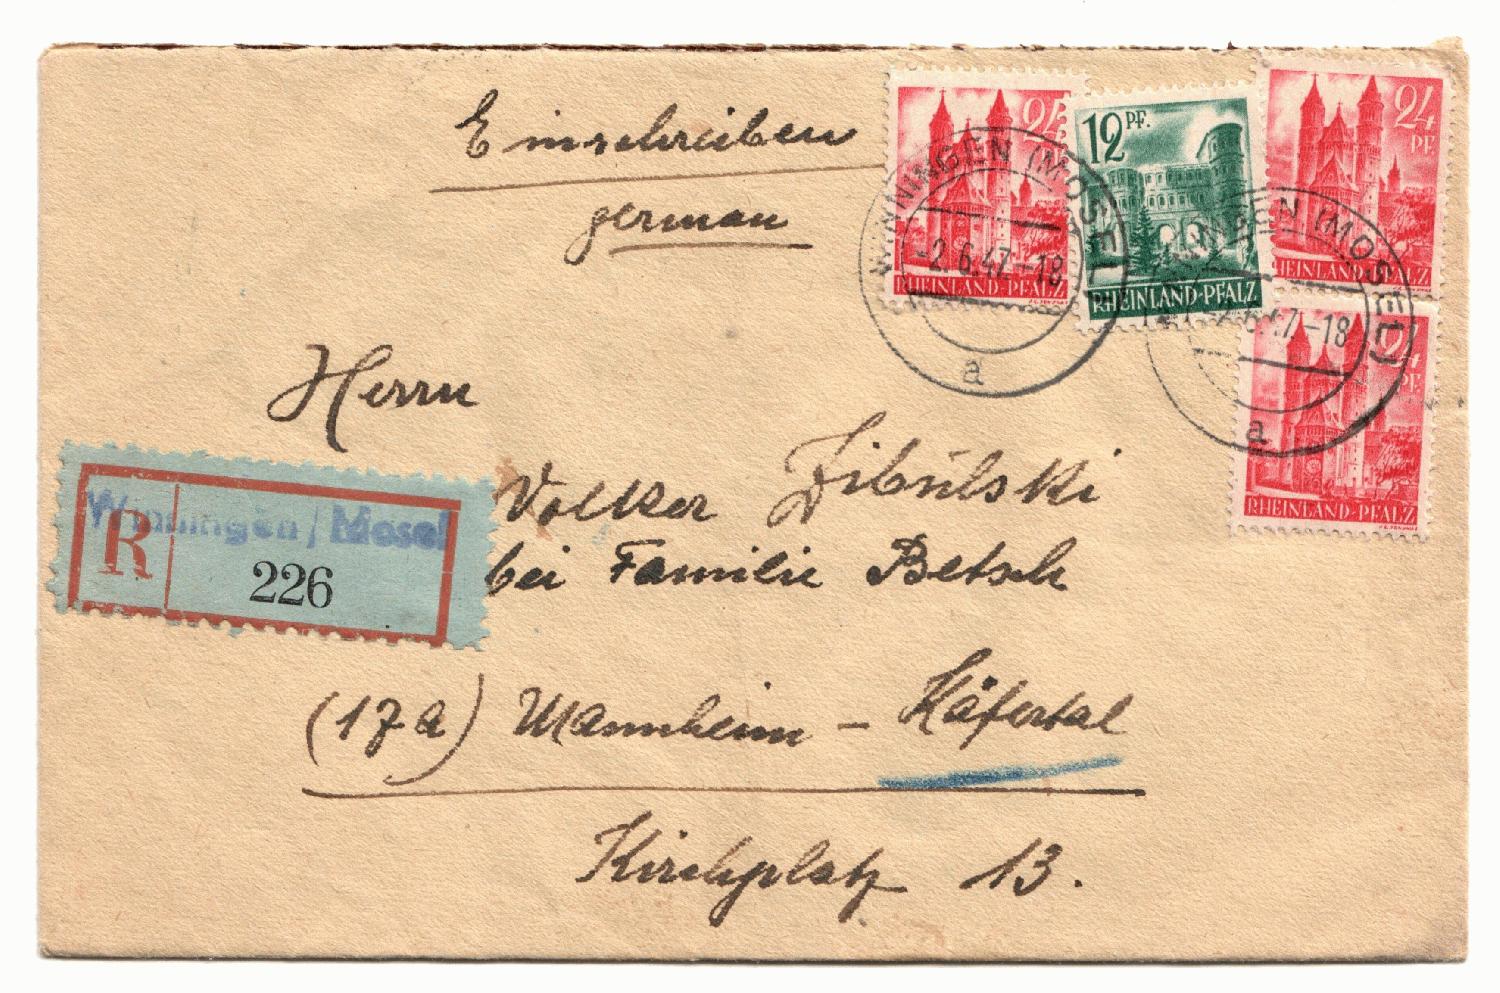 Einschreiben
german
24 PF.
RHEINLAND-PFALZ
12 PF.
RHEINLAND-PFALZ
24 PF.
RHEINLAND-PFALZ
24 PF.
RHEINLAND-PFALZ
WINNINGEN (MOSEL)
-2.6.47.-18
a
WINNINGEN (MOSEL)
-2.6.47.-18
a
Herrn
Volker Zibulski
bei Familie Betsch
Winningen / Mosel
R 226
(17a) Mannheim - Käfertal
Kirchplatz 13.